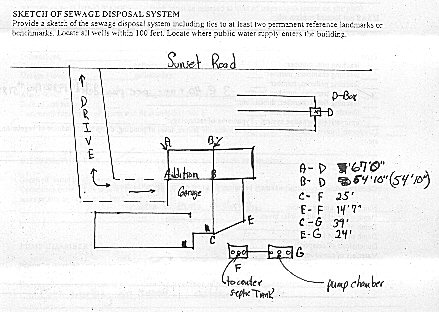 SKETCH OF SEWAGE DISPOSAL SYSTEM
Provide a sketch of the sewage disposal system including ties to at least two permanent reference landmarks or
benchmarks. Locate all wells within 100 feet. Locate where public water supply enters the building.
Sunset Road
DRIVE
D-Box
D
A
B
Addition
B
Garage
A - D 67'0"
B - D 54'10" (54'10")
C - F 25'
E - F 14'7"
C - G 39'
E - G 24'
E
C
F
G
septic Tank
pump chamber